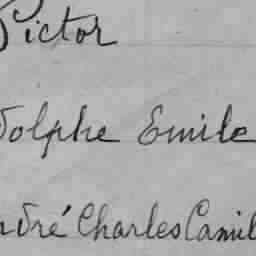 Victor
dolphe Emile
ndré Charles Camil